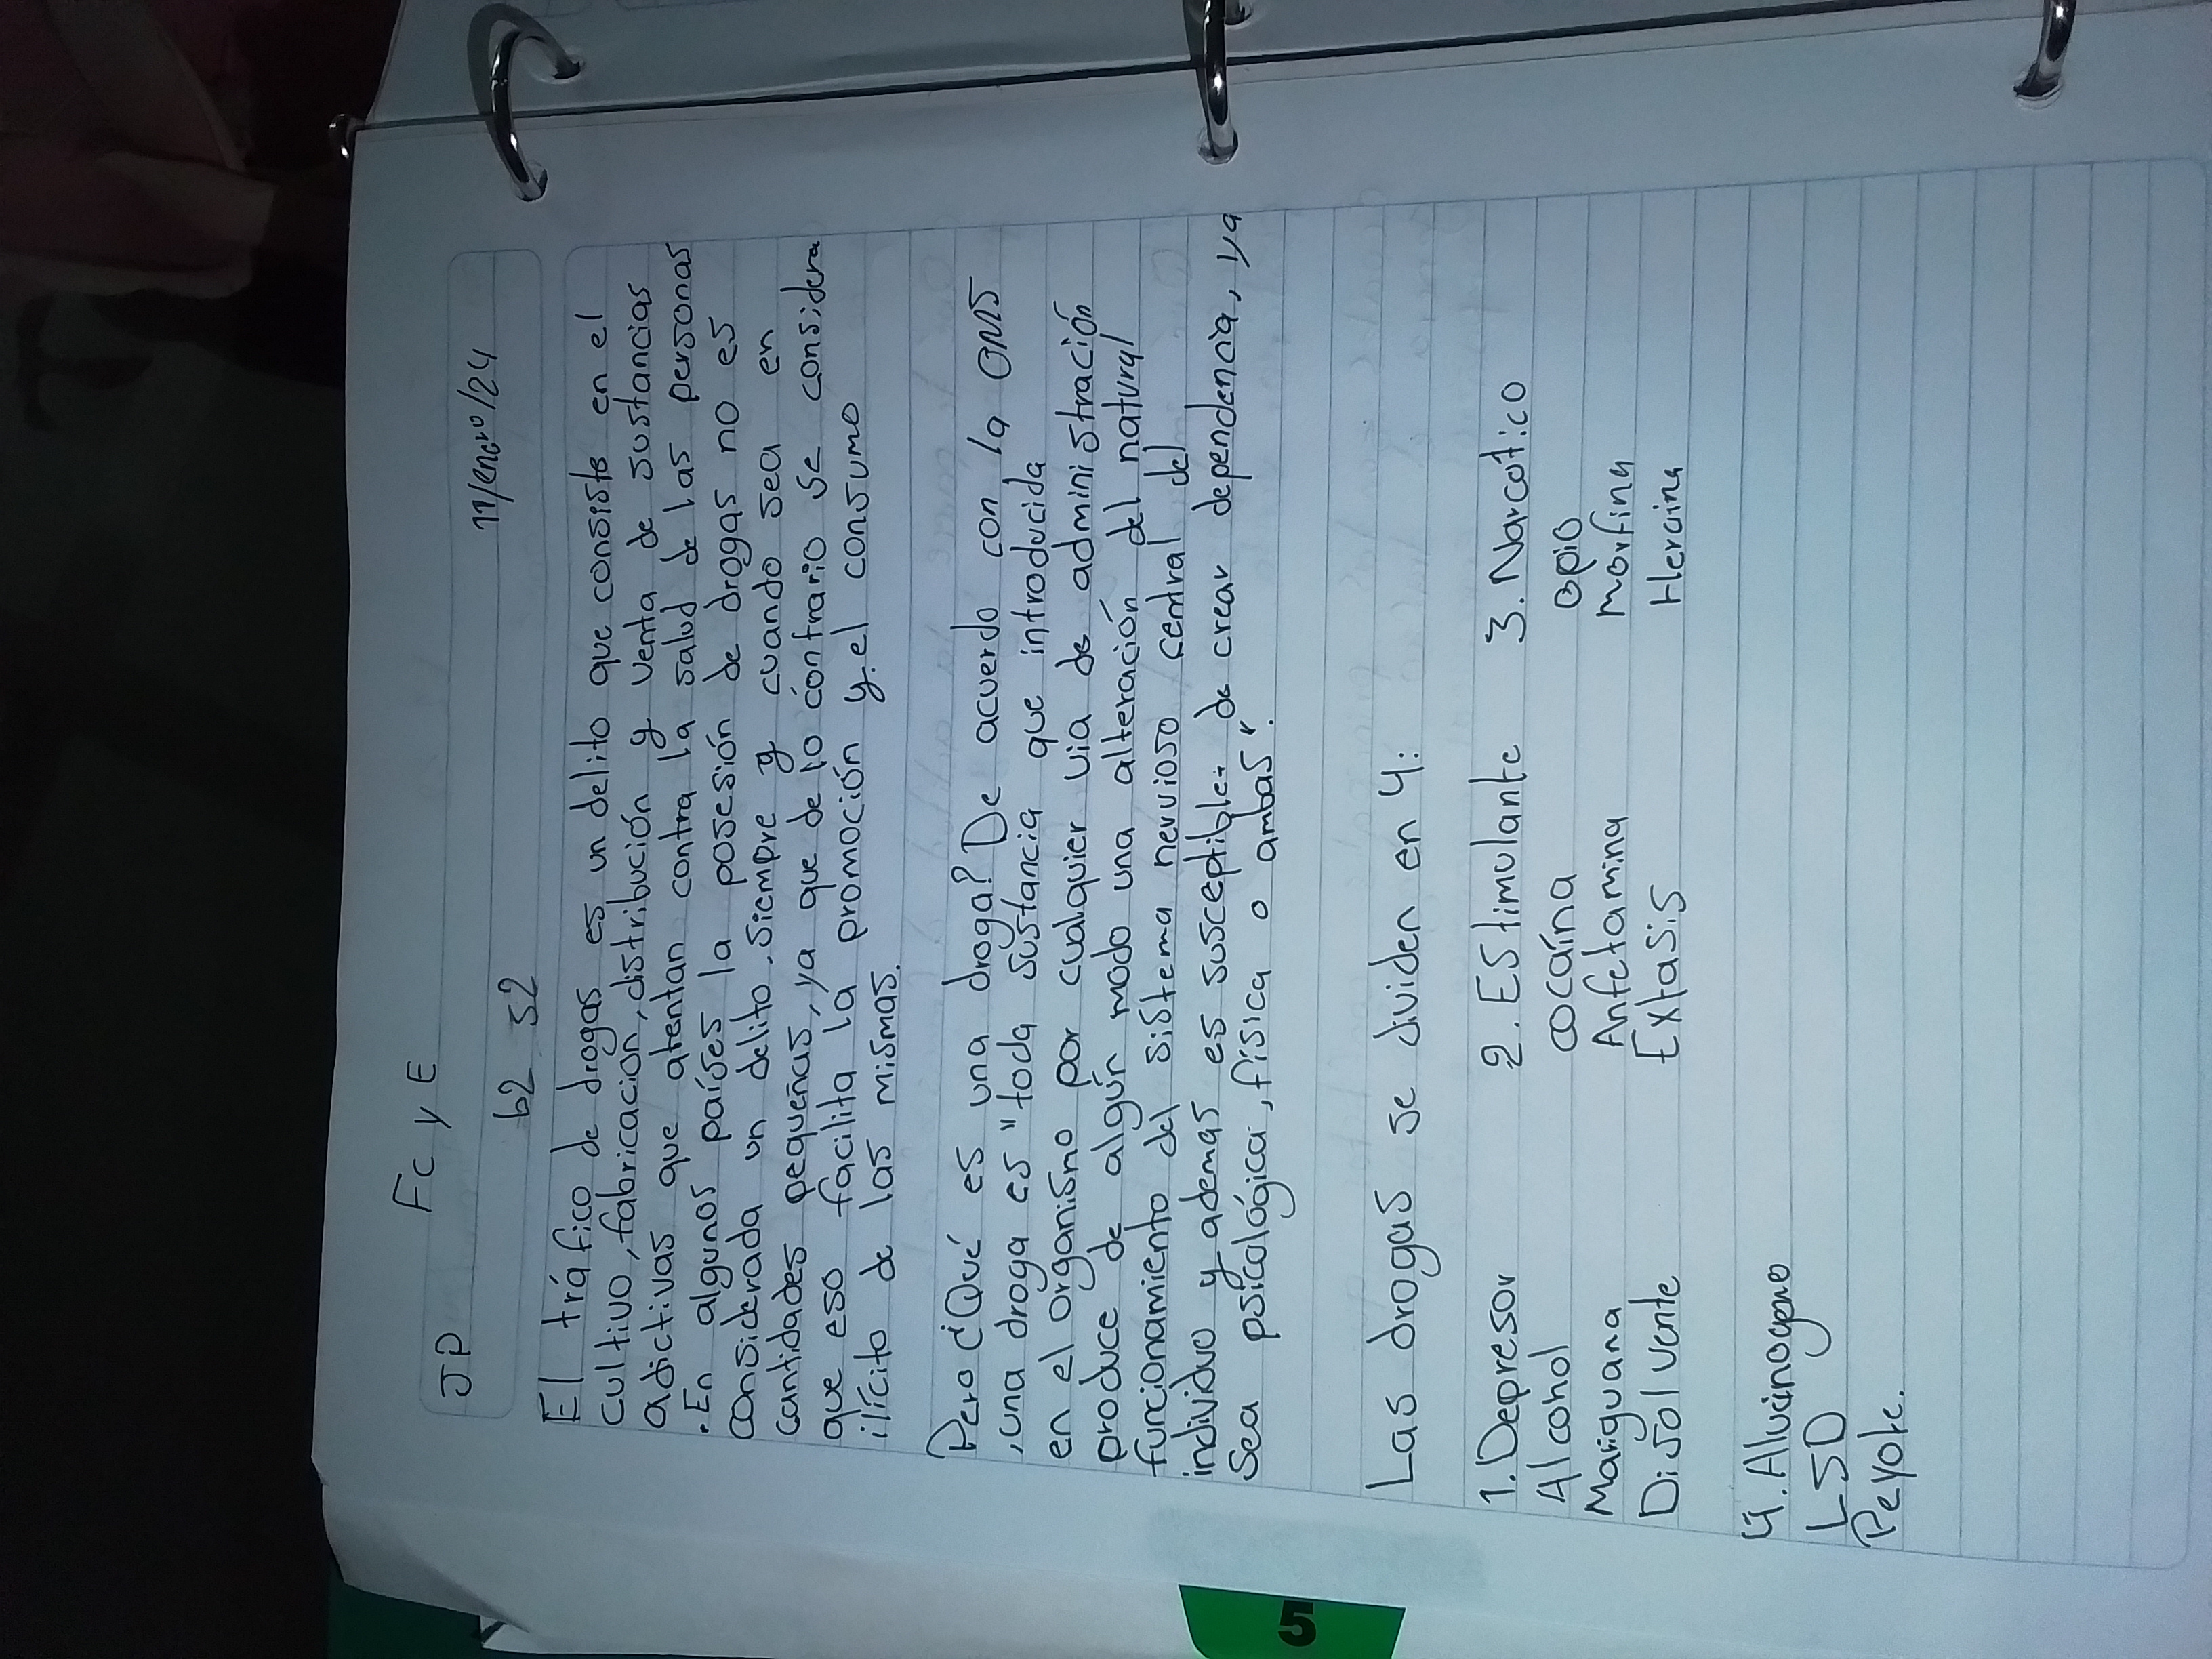 Fc y E
JP
b2 S2 11/enero/24
El tráfico de drogas es un delito que consiste en el
cultivo, fabricación, distribución y venta de sustancias
adictivas que atentan contra la salud de las personas
. En algunos países la posesión de drogas no es
considerada un delito, siempre y cuando sea en
cantidades pequeñas, ya que de lo contrario se considera
que eso facilita la promoción y el consumo
ilícito de las mismas.
Pero ¿Qué es una droga? De acuerdo con la OMS
, una droga es "toda sustancia que introducida
en el organismo por cualquier via de administración
produce de algún modo una alteración del natural
funcionamiento del sistema nervioso central del
individuo y ademas es susceptible de crear dependencia, ya
sea psicológica, física o ambas".
Las drogas se dividen en 4:
1. Depresor 2. Estimulante 3. Narcotico
Alcohol cocaína opio
Mariguana Anfetamina morfina
Disolvente Extasis Heroina
4. Alucinogeno
LSD
Peyote.
5